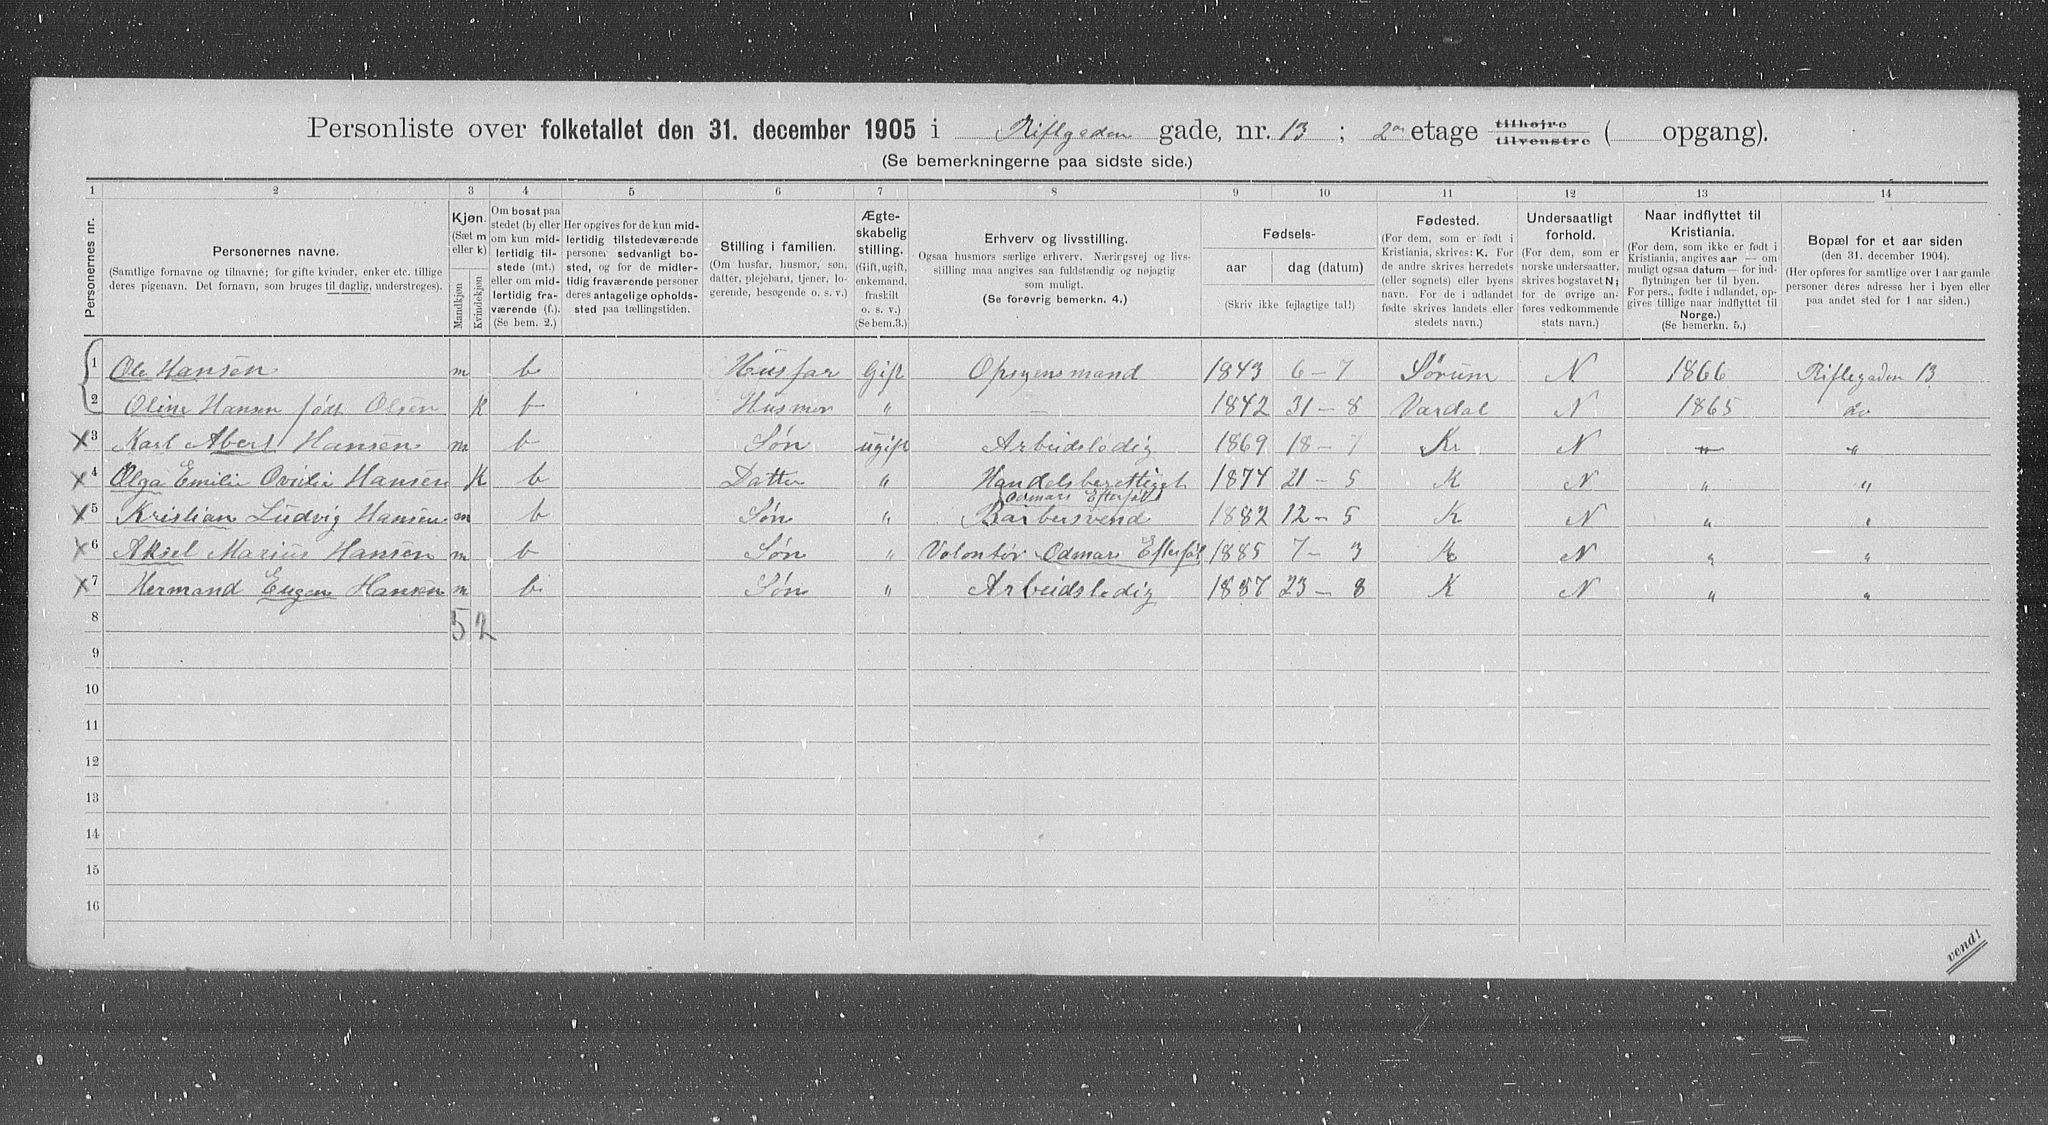 Personliste over folketallet den 31. december 1905 i Riflgaden gade, nr. 13 ; 2den etage tilhøjre tilvenstre ( opgang).
(Se bemerkningerne paa sidste side.)
1 2 3 4 5 6 7 8 9 10 11 12 13 14
Personernes nr.
Personernes navne.
(Samtlige fornavne og tilnavne; for gifte kvinder, enker etc. tillige
deres pigenavn. Det fornavn, som bruges til daglig, understreges).
Kjøn.
(Sæt m
eller k)
Mandkjøn
Kvindekjøn
Om bosat paa
stedet (b) eller
om kun mid-
lertidig til-
stede (mt.)
eller om mid-
lertidig fra-
værende (f.).
(Se bem. 2.)
Her opgives for de kun mid-
lertidig tilstedeværende
personer sedvanligt bo-
sted, og for de midler-
tidig fraværende personer
deres antagelige opholds-
sted paa tællingstiden.
Stilling i familien.
(Om husfar, husmor, søn,
datter, plejebarn, tjener, lo-
gerende, besøgende o. s. v.)
Ægte-
skabelig
stilling.
(Gift, ugift,
enkemand,
fraskilt
o. s. v.)
(Se bem. 3.)
Erhverv og livsstilling.
Ogsaa husmors særlige erhverv. Næringsvej og livs-
stilling maa angives saa fuldstændig og nøjagtig
som muligt.
(Se forøvrig bemerkn. 4.)
Fødsels-
aar dag (datum)
(Skriv ikke fejlagtige tal!)
Fødested.
(For dem, som er født i
Kristiania, skrives: K. For
de andre skrives herredets
(eller sognets) eller byens
navn. For de i udlandet
fødte skrives landets eller
stedets navn.)
Undersaatligt
forhold.
(For dem, som er
norske undersaatter,
skrives bogstavet N;
for de øvrige an-
føres vedkommende
stats navn.)
Naar indflyttet til
Kristiania.
(For dem, som ikke er født i
Kristiania, angives aar — om
muligt ogsaa datum — for ind-
flytningen her til byen.
For pers., fødte i udlandet, op-
gives tillige naar indflyttet til
Norge.)
(Se bemerkn. 5.)
Bopæl for et aar siden
(den 31. december 1904).
(Her opføres for samtlige over 1 aar gamle
personer deres adresse her i byen eller
paa andet sted for 1 aar siden.)
1 Ole Hansen m b Husfar Gift Opsynsmand 1843 6 - 7 Sørum N 1866 Riflegaden 13
2 Oline Hansen født Olsen K b Husmor " — 1842 31 - 8 Vardal N 1865 do
3 Karl Abert Hansen m b Søn ugift Arbeidsledig 1869 18 - 7 Kr N " "
4 Olga Emilie Ovidia Hansen K b Datter " Handelsberettiget 1874 21 - 5 K N " "
5 Kristian Ludvig Hansen m b Søn " Barbersvend 1882 12 - 5 K N " "
6 Aksel Marius Hansen m b Søn " Volontør Odmars Efterføl 1885 7 - 3 K N " "
7 Hermand Eugen Hansen m b Søn " Arbeidsledig 1887 23 - 8 K N " "
8 5 2
9
10
11
12
13
14
15
16
vend!